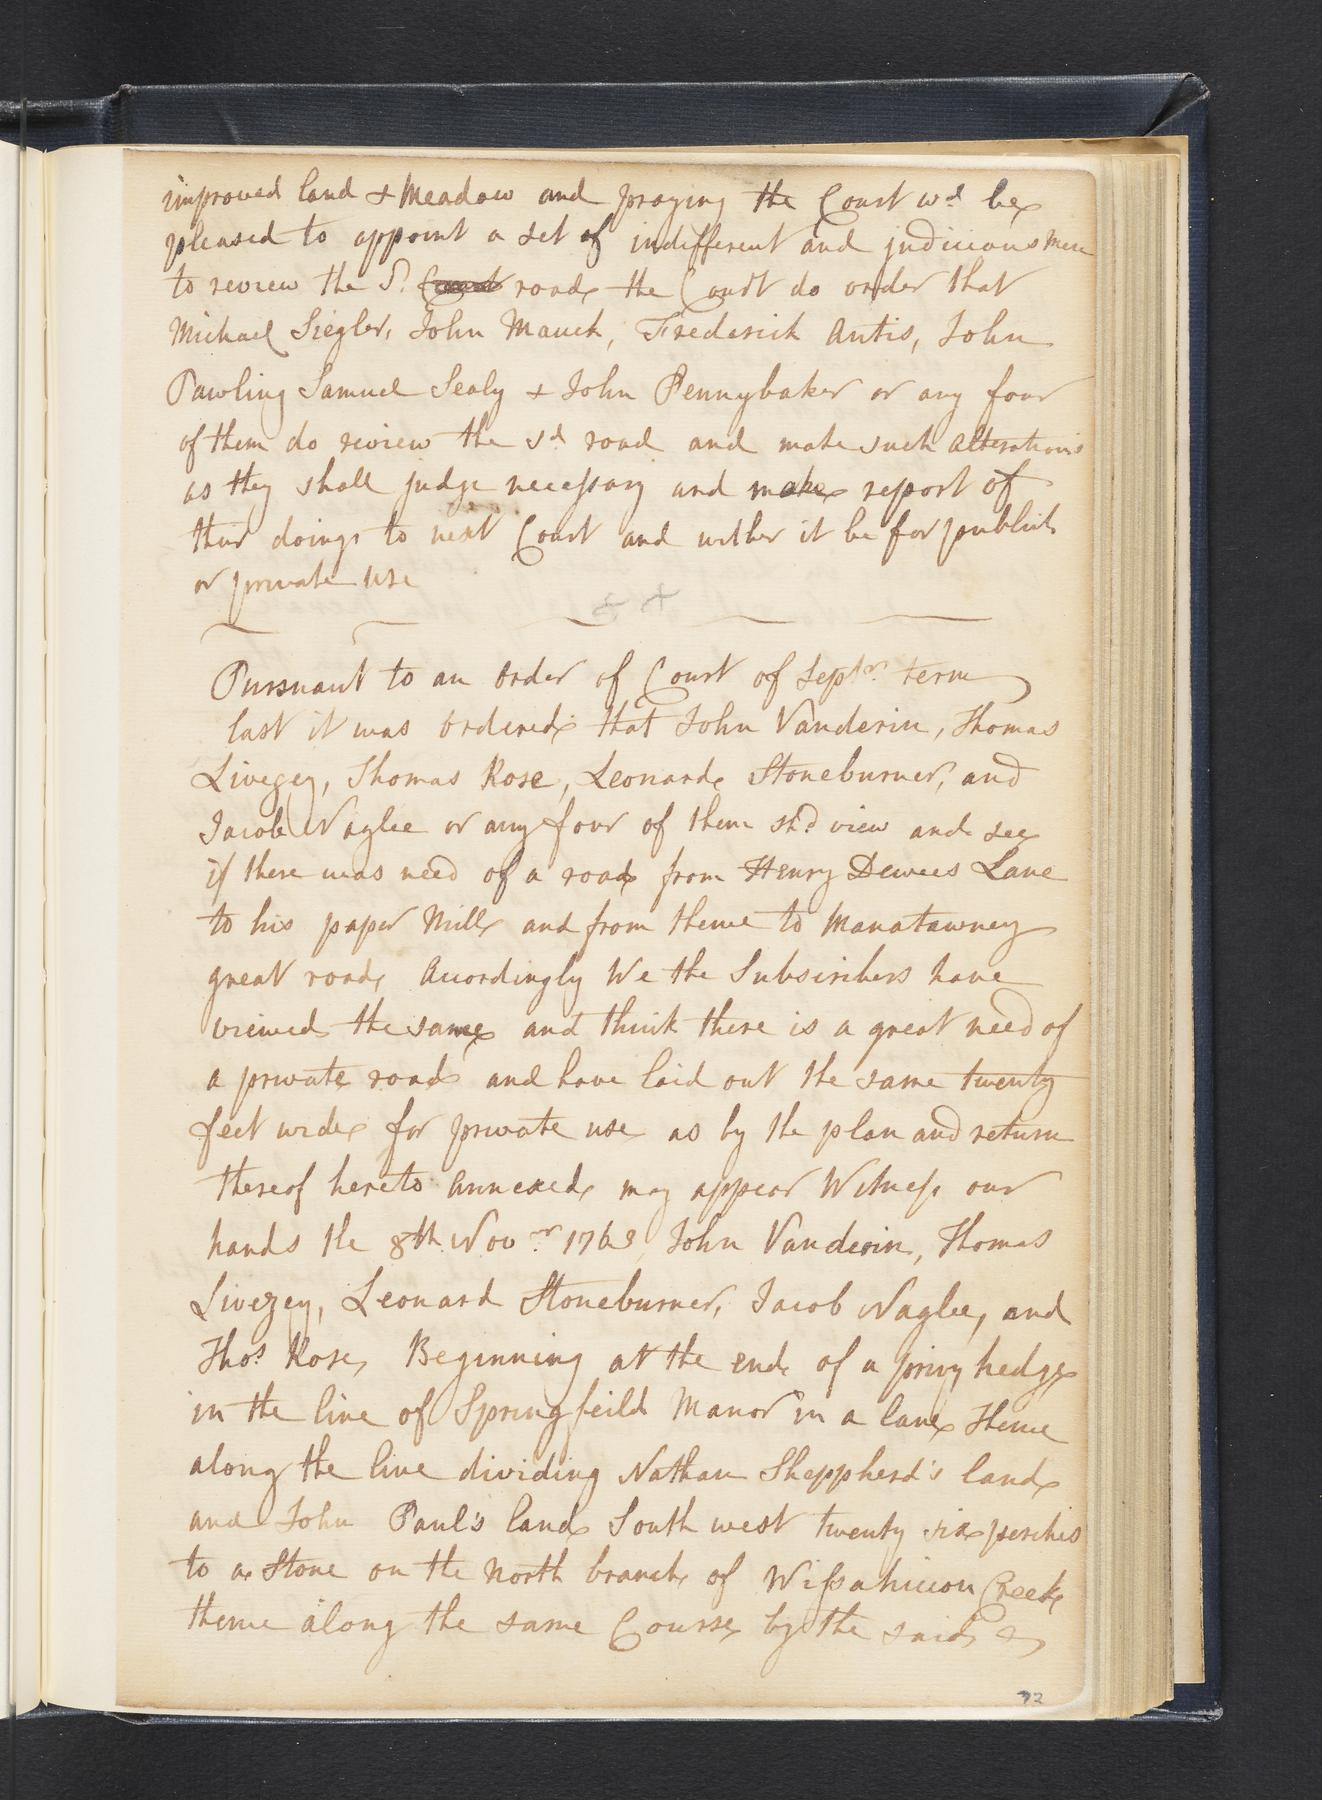 improved land & Meadow and praying the Court wd be
pleased to appoint a set of indifferent and judicious men
to review the sd Court road the Court do order that
Michael Siegler, John Mauck, Frederick Antis, John
Pawling Samuel Sealy & John Pennybaker or any four
of them do review the sd road and make such Alterations
as they shall judge necessary and make report of
their doings to next Court and wether it be for publick
or private use
Pursuant to an Order of Court of Septr term
last it was Ordered that John Vanderin, Thomas
Livezey, Thomas Rose, Leonard Stoneburner, and
Jacob Naglee or any four of them shd view and see
if there was need of a road from Henry Dewees Lane
to his paper Mill and from thence to Manatawney
great road, Accordingly We the Subscribers have
viewed the same and think there is a great need of
a private road and have laid out the same twenty
feet wide for private use as by the plan and return
thereof hereto Annexed may appear Witness our
hands the 8th Novr 1763 John Vanderin, Thomas
Livezey, Leonard Stoneburner, Jacob Naglee, and
Thos Rose, Beginning at the end of a privy hedge
in the line of Springfeild Manor in a lane Thence
along the line dividing Nathan Sheppherd's land
and John Paul's land South west twenty six perches
to a Stone on the North branch of Wissahiccon Creek
thence along the same Course by the said
72